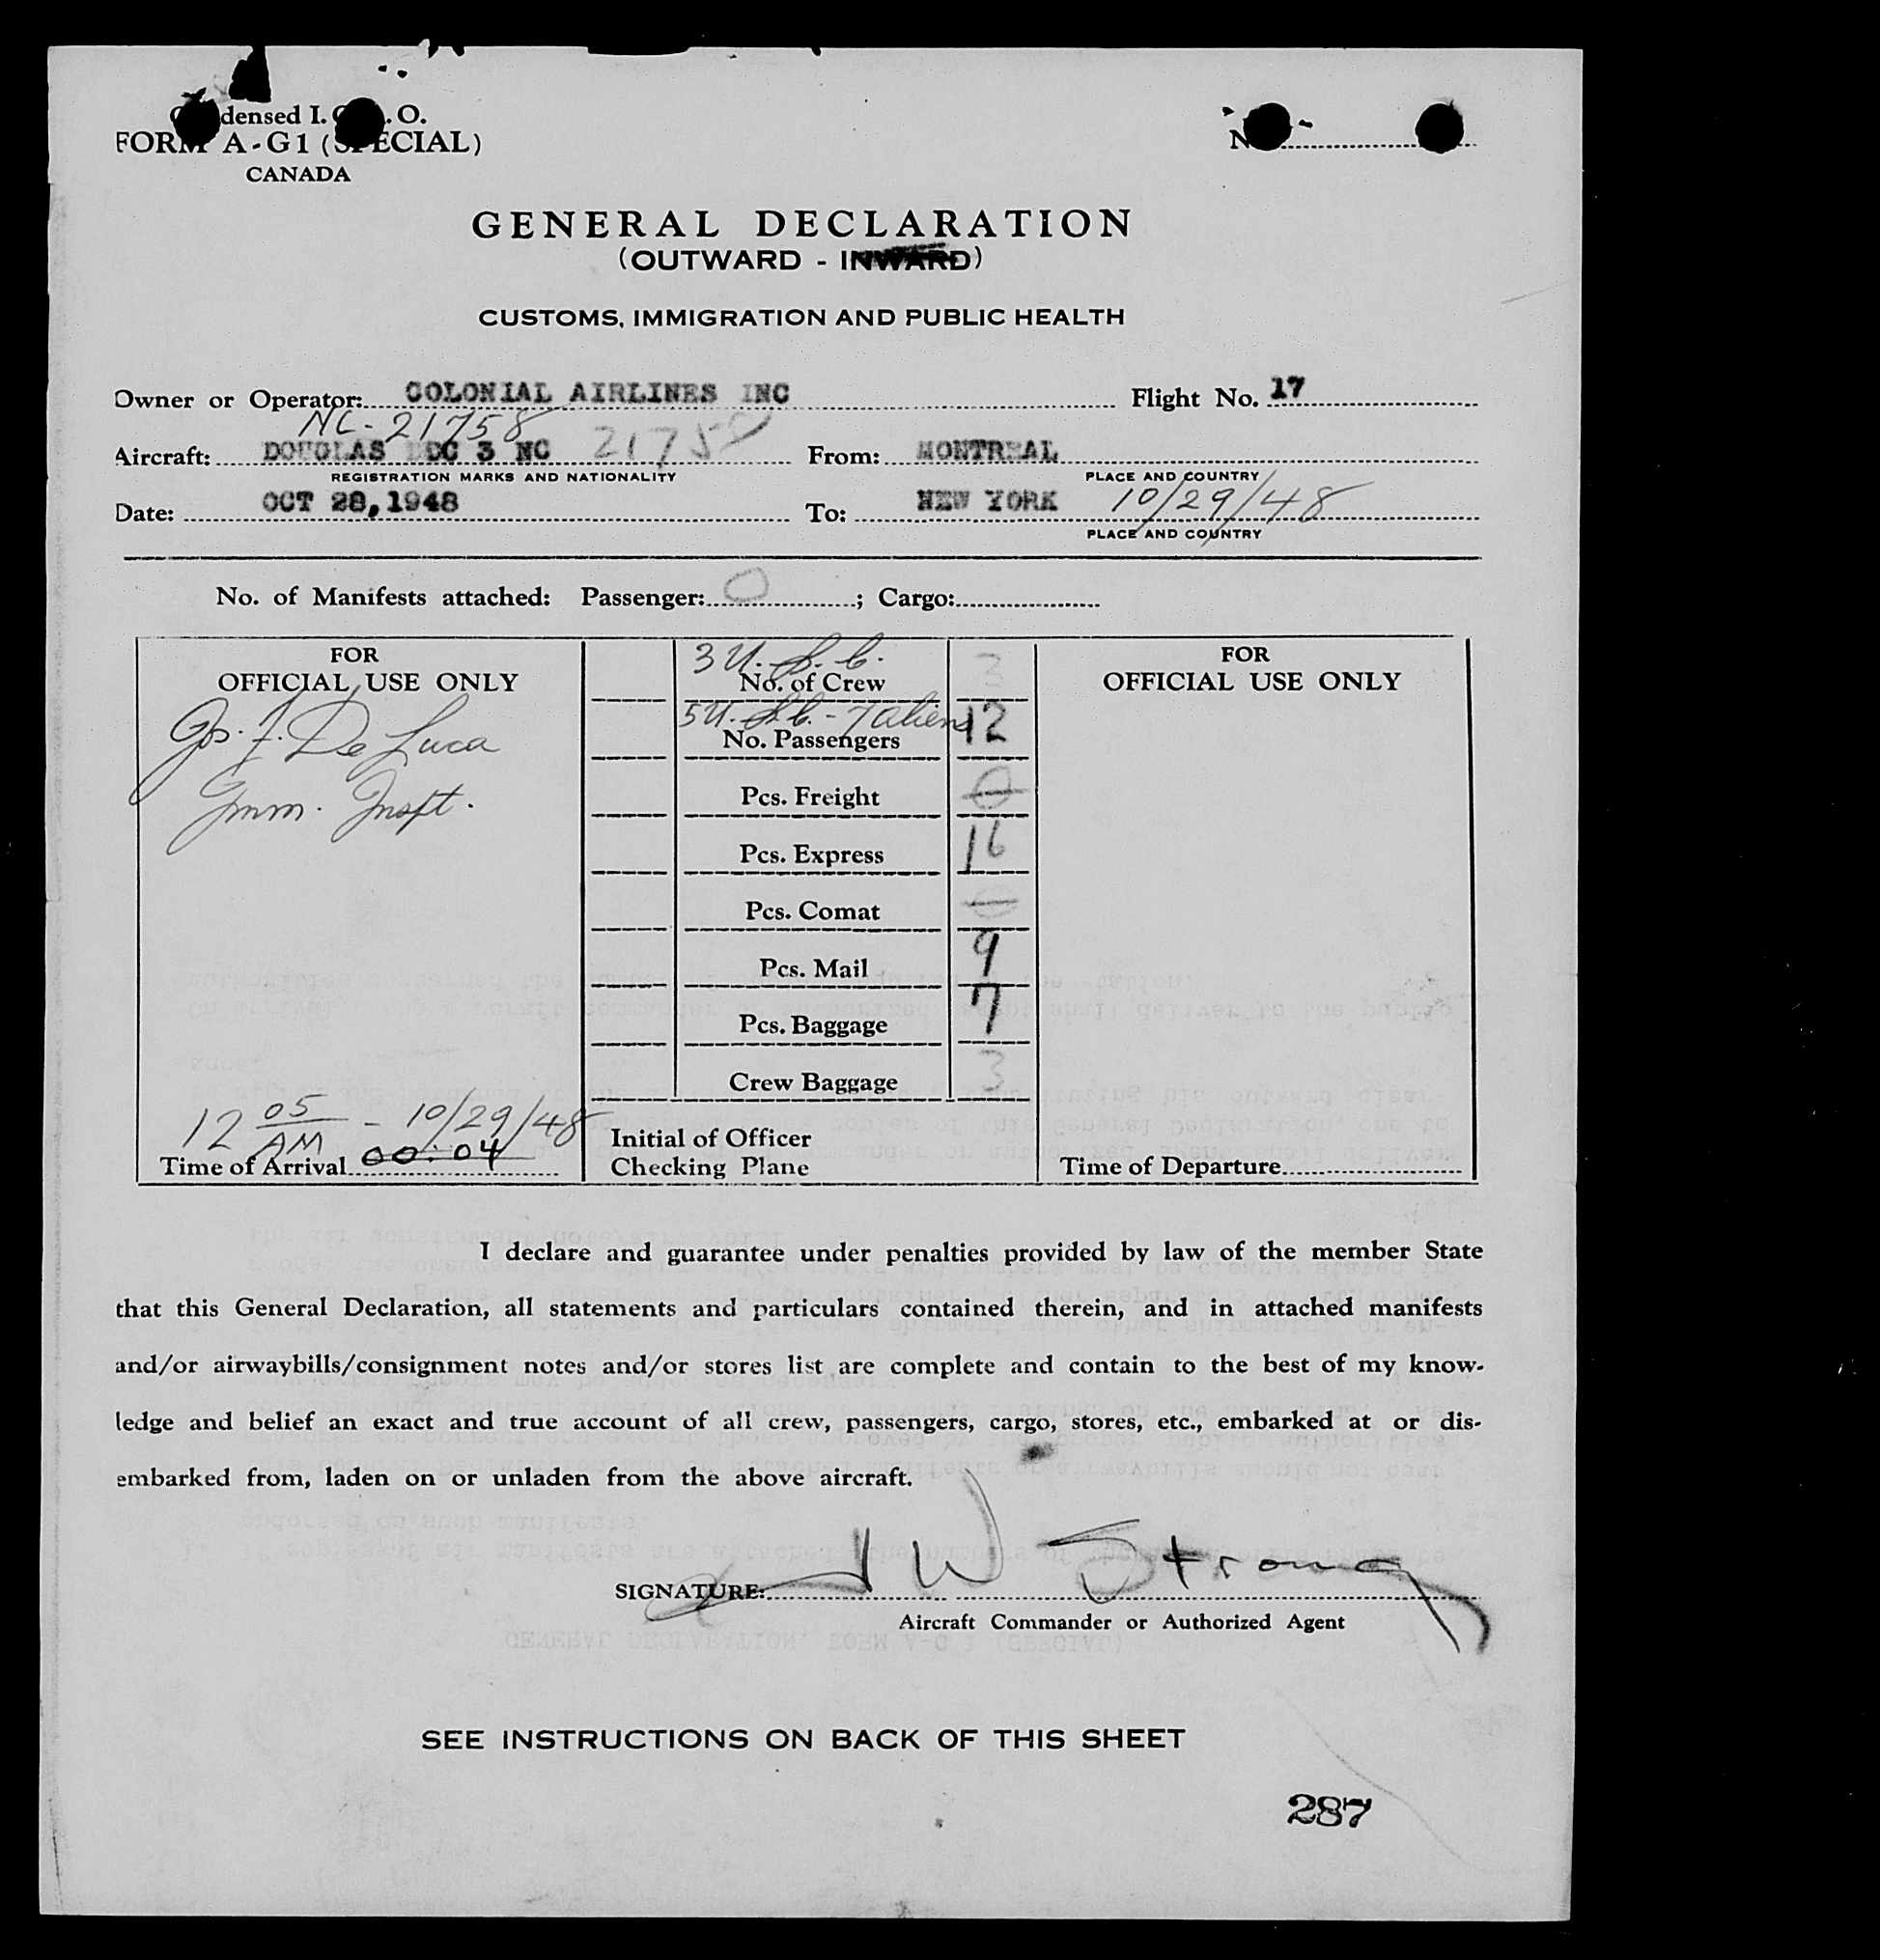 densed I. . O.
FORM A-G1 (SPECIAL)
CANADA
GENERAL DECLARATION
(OUTWARD - INWARD)
CUSTOMS, IMMIGRATION AND PUBLIC HEALTH
Owner or Operator: COLONIAL AIRLINES INC Flight No. 17
NC-21758
Aircraft: DOUGLAS DC 3 NC 21758 From: MONTREAL
REGISTRATION MARKS AND NATIONALITY PLACE AND COUNTRY
Date: OCT 28, 1948 To: NEW YORK 10/29/48
PLACE AND COUNTRY
No. of Manifests attached: Passenger: 0 ; Cargo:
FOR
OFFICIAL USE ONLY
Jos. J. De Luca
Imm. Inspt.
12 05 AM - 10/29/48
Time of Arrival 00:04
3 U.S.C.
No. of Crew 3
5 U.S.C. - 7 aliens
No. Passengers 12
Pcs. Freight 0
Pcs. Express 16
Pcs. Comat 0
Pcs. Mail 9
Pcs. Baggage 7
Crew Baggage 3
Initial of Officer
Checking Plane
FOR
OFFICIAL USE ONLY
Time of Departure
I declare and guarantee under penalties provided by law of the member State
that this General Declaration, all statements and particulars contained therein, and in attached manifests
and/or airwaybills/consignment notes and/or stores list are complete and contain to the best of my know-
ledge and belief an exact and true account of all crew, passengers, cargo, stores, etc., embarked at or dis-
embarked from, laden on or unladen from the above aircraft.
SIGNATURE: J W Strong
Aircraft Commander or Authorized Agent
SEE INSTRUCTIONS ON BACK OF THIS SHEET
287